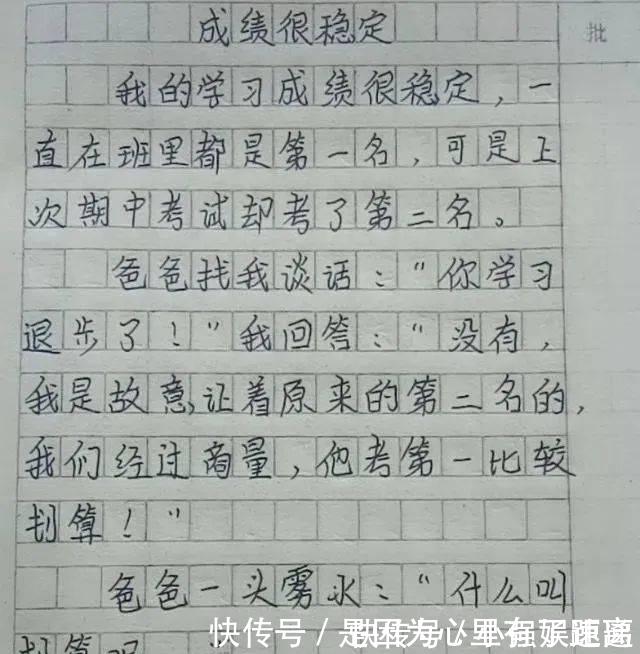 成绩很稳定
批
我的学习成绩很稳定，一
直在班里都是第一名，可是上
次期中考试却考了第二名。
爸爸找我谈话：“你学习
退步了！”我回答：“没有，
我是故意让着原来的第二名的，
我们经过商量，他考第一比较
划算！”
爸爸一头雾水：“什么叫
划算呢
快传号/